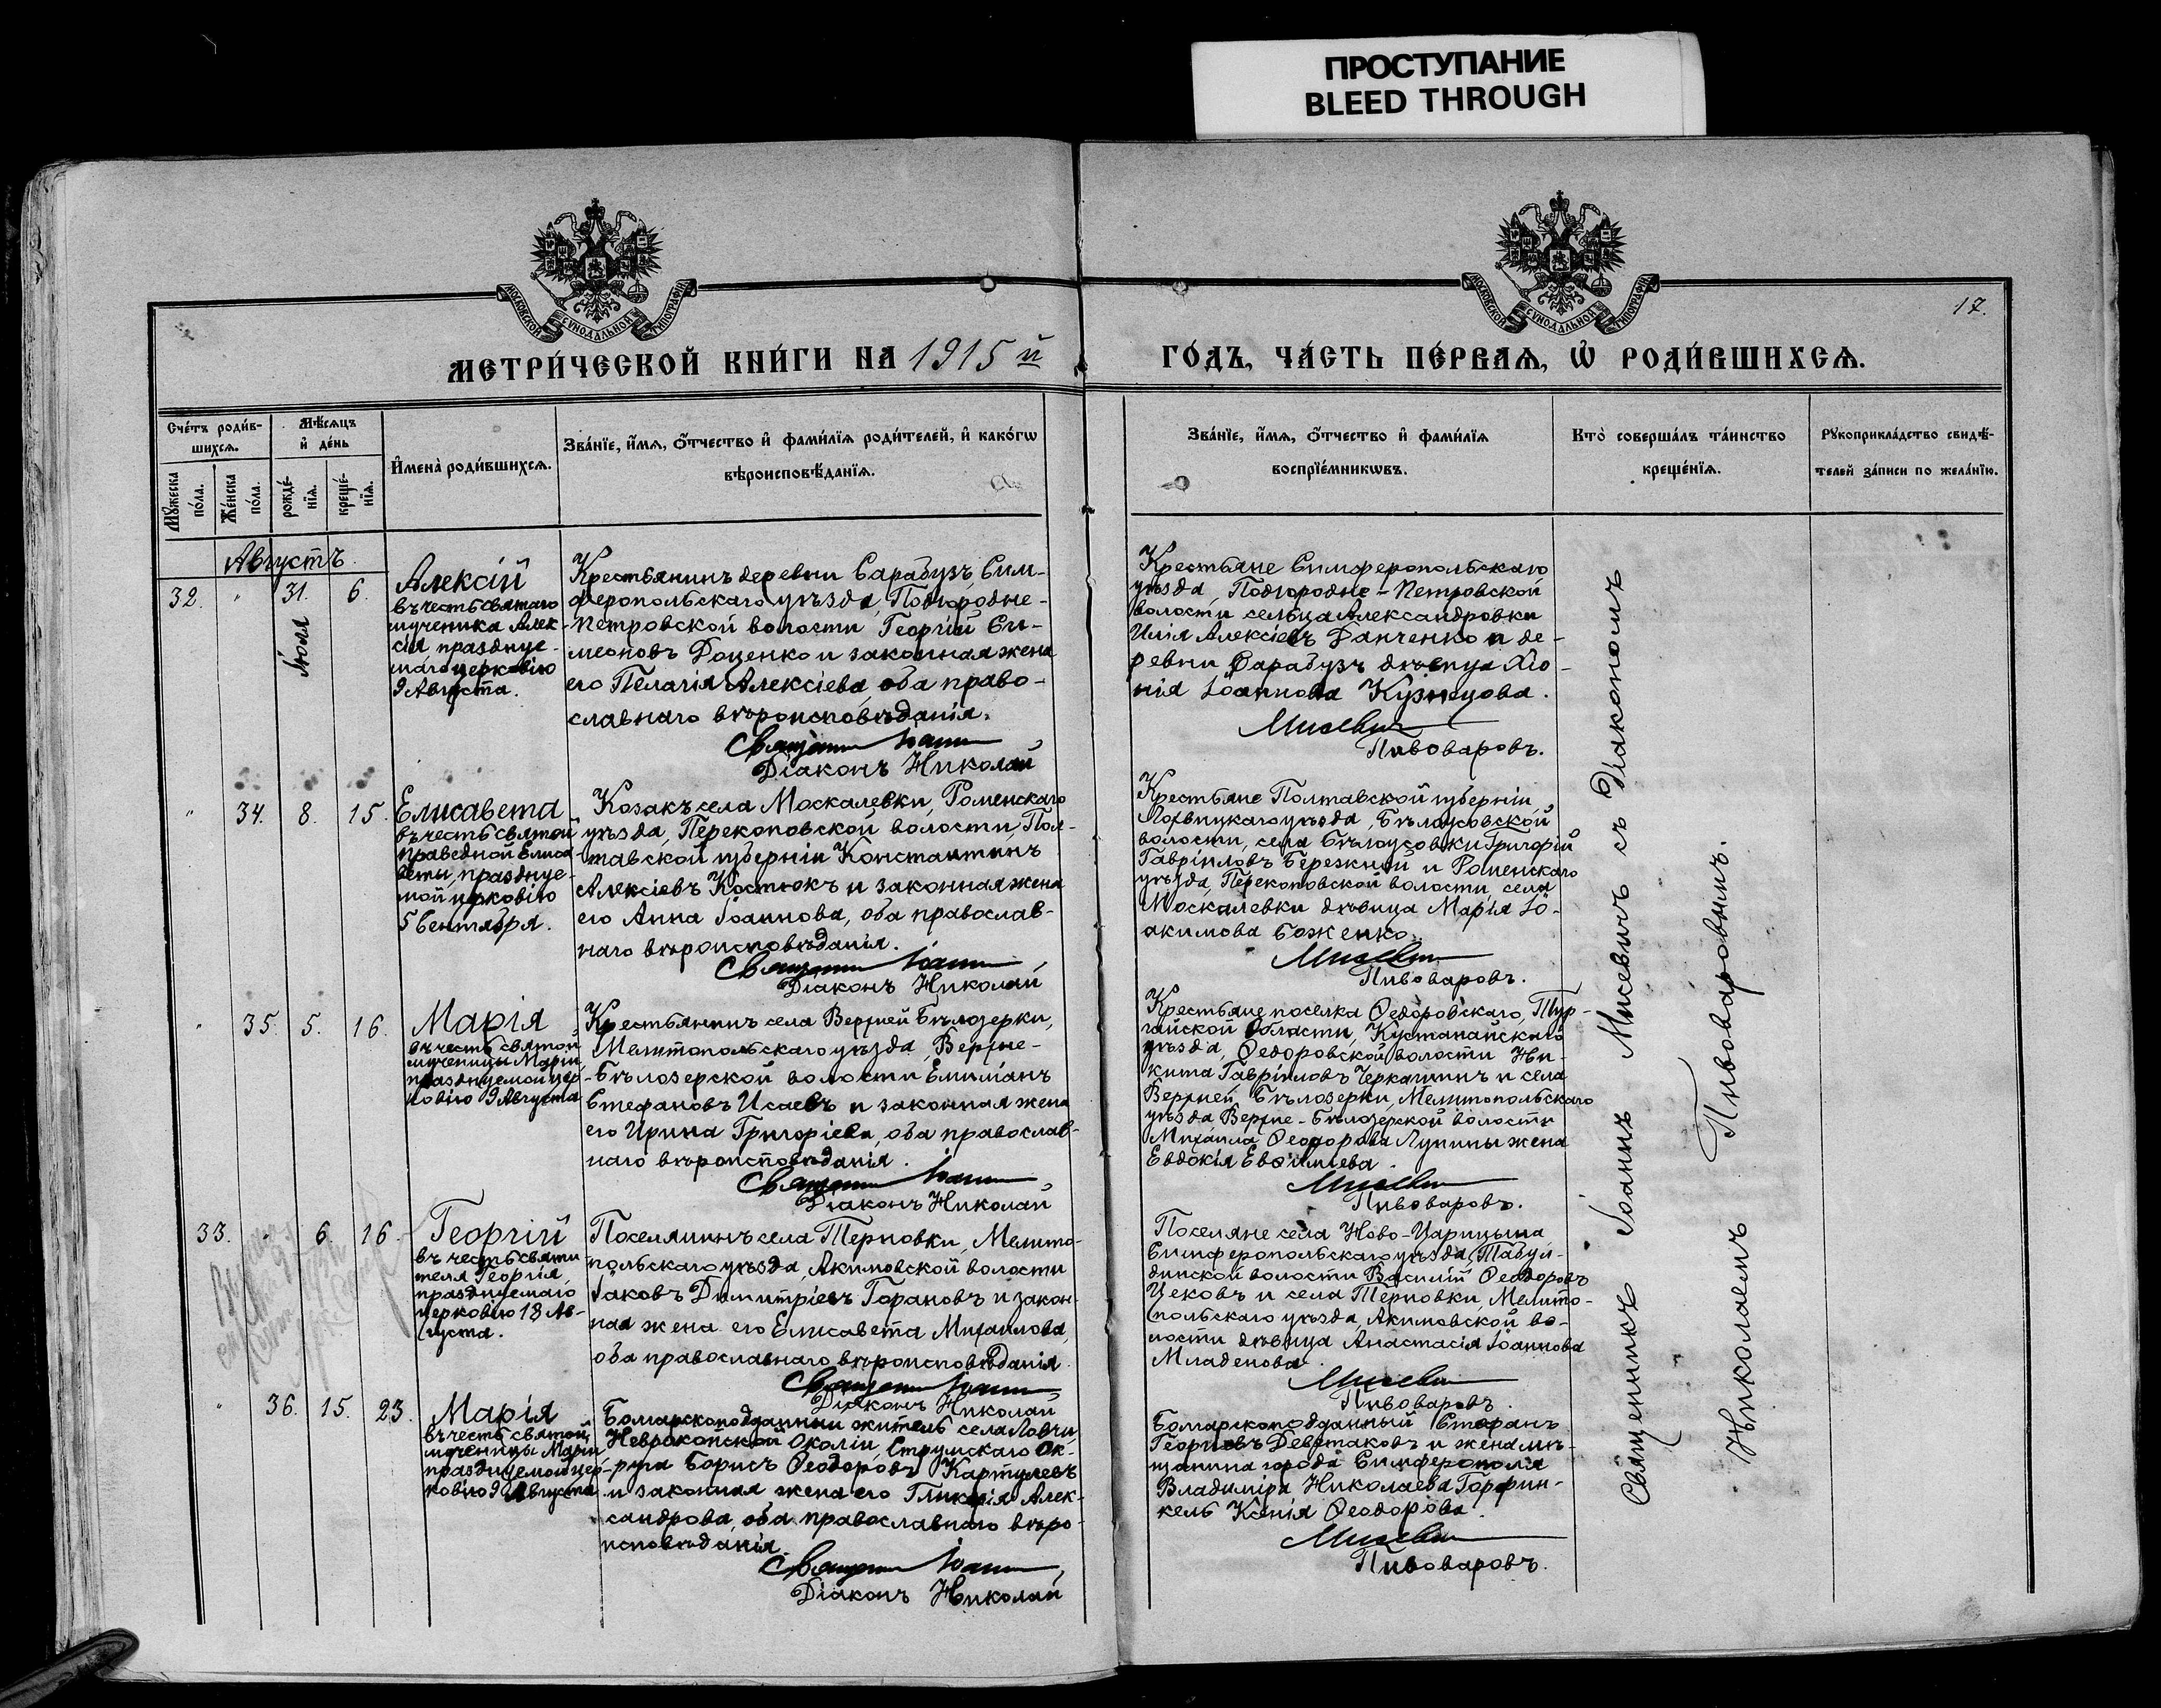 ПРОСТУПАНИЕ
BLEED THROUGH
МОСКОВСКОЙ СѴНОДАЛЬНОЙ ТИПОГРАФІИ
МОСКОВСКОЙ СѴНОДАЛЬНОЙ ТИПОГРАФІИ
17.
МЕТРИ́ЧЕСКОЙ КНИ́ГИ НА 1915 й
ГО́ДЪ, ЧА́СТЬ ПЕ́РВАѦ, Ѡ РОДИ́ВШИХСѦ.
Сче́тъ роди́в-
шихсѧ.
Мꙋ́жеска по́ла.
Же́нска по́ла.
Мѣ́сѧцъ
и де́нь
рожде́-
нїѧ.
креще́-
нїѧ.
И҆мена̀ роди́вшихсѧ.
Зва́нїе, и҆́мѧ, ѻ҆́тчество и҆ фами́лїѧ роди́телей, и҆ како́гѡ
вѣроисповѣ́данїѧ.
Зва́нїе, и҆́мѧ, ѻ҆́тчество и҆ фами́лїѧ
воспрїе́мникѡвъ.
Кто̀ соверша́лъ та́инство
креще́нїѧ.
Рꙋкоприкла́дство свидѣ́-
телей за́писи по жела́нїю.
Августъ.
32. " 31. Іюля 6.
Алексій
въ честь святаго
мученика Алек-
сія, празднуе-
маго церковію
9 Августа.
Крестьянинъ деревни Сарабузъ, Сим-
феропольскаго уѣзда, Подгородне-
-Петровской волости Георгій Си-
меоновъ Доценко и законная жена
его Пелагія Алексіева, оба право-
славнаго вѣроисповѣданія.
Священникъ Іоаннъ
Діаконъ Николай
Крестьяне Симферопольскаго
уѣзда, Подгородне-Петровской
волости сельца Александровки
Илія Алексіевъ Данченко и де-
ревни Сарабузъ дѣвица Хіо-
нія Іоаннова Кузнецова.
Мисевичъ
Пивоваровъ.
" 34. 8. 15.
Елисавета
въ честь святой
праведной Елиса-
веты, празднуе-
мой церковію
5 Сентября.
Козакъ села Москалевки, Роменскаго
уѣзда, Перекоповской волости, Пол-
тавской губерніи Константинъ
Алексіевъ Костюкъ и законная жена
его Анна Іоаннова, оба православ-
наго вѣроисповѣданія.
Священникъ Іоаннъ
Діаконъ Николай
Крестьяне Полтавской губерніи
Лохвицкаго уѣзда, Бѣлоусовской
волости, села Бѣлоусовки Григорій
Гавріиловъ Бережный и Роменскаго
уѣзда, Перекоповской волости, села
Москалевки дѣвица Марія Іо-
акимова Боженко.
Мисевичъ
Пивоваровъ.
" 35. 5. 16.
Марія
въ честь святой
мученицы Маріи,
празднуемой цер-
ковію 9 Августа
Крестьянинъ села Верхней Бѣлозерки,
Мелитопольскаго уѣзда, Верхне-
-Бѣлозерской волости Емиліанъ
Стефановъ Исаевъ и законная жена
его Ирина Григоріева, оба православ-
наго вѣроисповѣданія.
Священникъ Іоаннъ
Діаконъ Николай
Крестьяне поселка Ѳеодоровскаго, Тур-
гайской области, Кустанайскаго
уѣзда, Ѳедоровской волости Ни-
кита Гавріиловъ Черкашинъ и села
Верхней Бѣлозерки, Мелитопольскаго
уѣзда Верхне-Бѣлозерской волости
Михаила Ѳеодорова Лупины жена
Евдокія Евѳиміева.
Мисевичъ
Пивоваровъ.
33. " 6. 16.
Георгій
въ честь святи-
теля Георгія,
празднуемаго
церковію 18 Ав-
густа.
Поселянинъ села Терновки, Мелито-
польскаго уѣзда, Акимовской волости
Іаковъ Димитріевъ Горановъ и закон-
ная жена его Елисавета Михаилова,
оба православнаго вѣроисповѣданія.
Священникъ Іоаннъ
Діаконъ Николай
Поселяне села Ново-Царицына
Симферопольскаго уѣзда, Табул-
динской волости Василій Ѳеодоровъ
Цековъ и села Терновки, Мелито-
польскаго уѣзда, Акимовской во-
лости дѣвица Анастасія Іоаннова
Младенова.
Мисевичъ
Пивоваровъ.
" 36. 15. 23.
Марія
въ честь святой
мученицы Маріи
празднуемой цер-
ковію 9 Августа
Болгарскоподданный житель села Ловчи,
Неврокопской Околіи, Струмскаго Ок-
руга Борисъ Ѳеодоровъ Картулевъ
и законная жена его Гликерія Алек-
сандрова, оба православнаго вѣро-
исповѣданія.
Священникъ Іоаннъ
Діаконъ Николай
Болгарскоподданный Стефанъ
Георгіевъ Деветаковъ и жена мѣ-
щанина города Симферополя
Владиміра Николаева Гарфин-
кель Ксенія Ѳеодорова.
Мисевичъ
Пивоваровъ.
Священникъ Іоаннъ Мисевичъ съ Діакономъ
Николаемъ Пивоваровымъ.